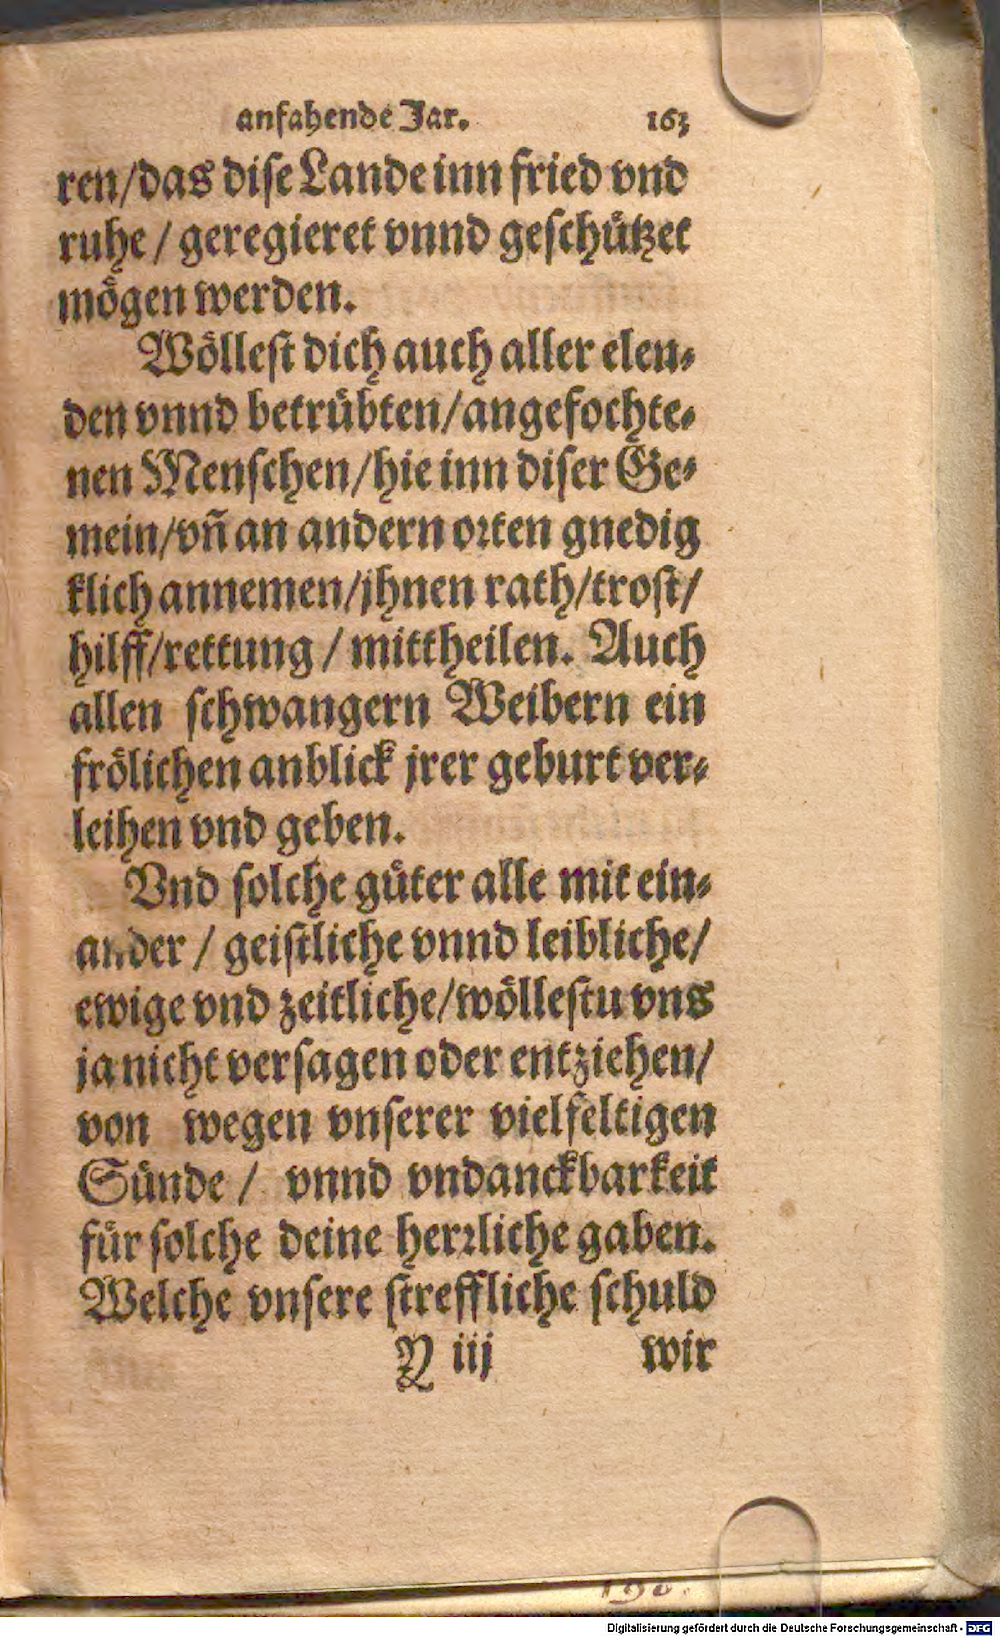 anfahende Jar. 163
ren/das dise Lande inn fried vnd
ruhe / geregieret vnnd geschützet
mögen werden.
Wöllest dich auch aller elen⸗
den vnnd betrübten/angefochte⸗
nen Menschen/hie inn diser Ge⸗
mein/vñ an andern orten gnedig
klich annemen/jhnen rath/trost/
hilff/rettung / mittheilen. Auch
allen schwangern Weibern ein
frölichen anblick jrer geburt ver⸗
leihen vnd geben.
Vnd solche güter alle mit ein⸗
ander / geistliche vnnd leibliche/
ewige vnd zeitliche/wöllestu vns
ja nicht versagen oder entziehen/
von wegen vnserer vielfeltigen
Sünde / vnnd vndanckbarkeit
für solche deine herrliche gaben.
Welche vnsere streffliche schuld
Y iij wir
Digitalisierung gefördert durch die Deutsche Forschungsgemeinschaft - DFG